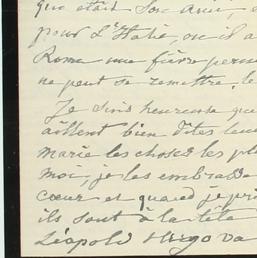 que était son ami, e
pour L'Italie, ou il a
Rome une fièvre perni
ne peut se remettre, le
Je suis heureuse que
aillent bien dites leur
marie les choses les pl
moi, je les embrasse
cœur et quand je pri
ils sont à la tête
Léopold Hugo va